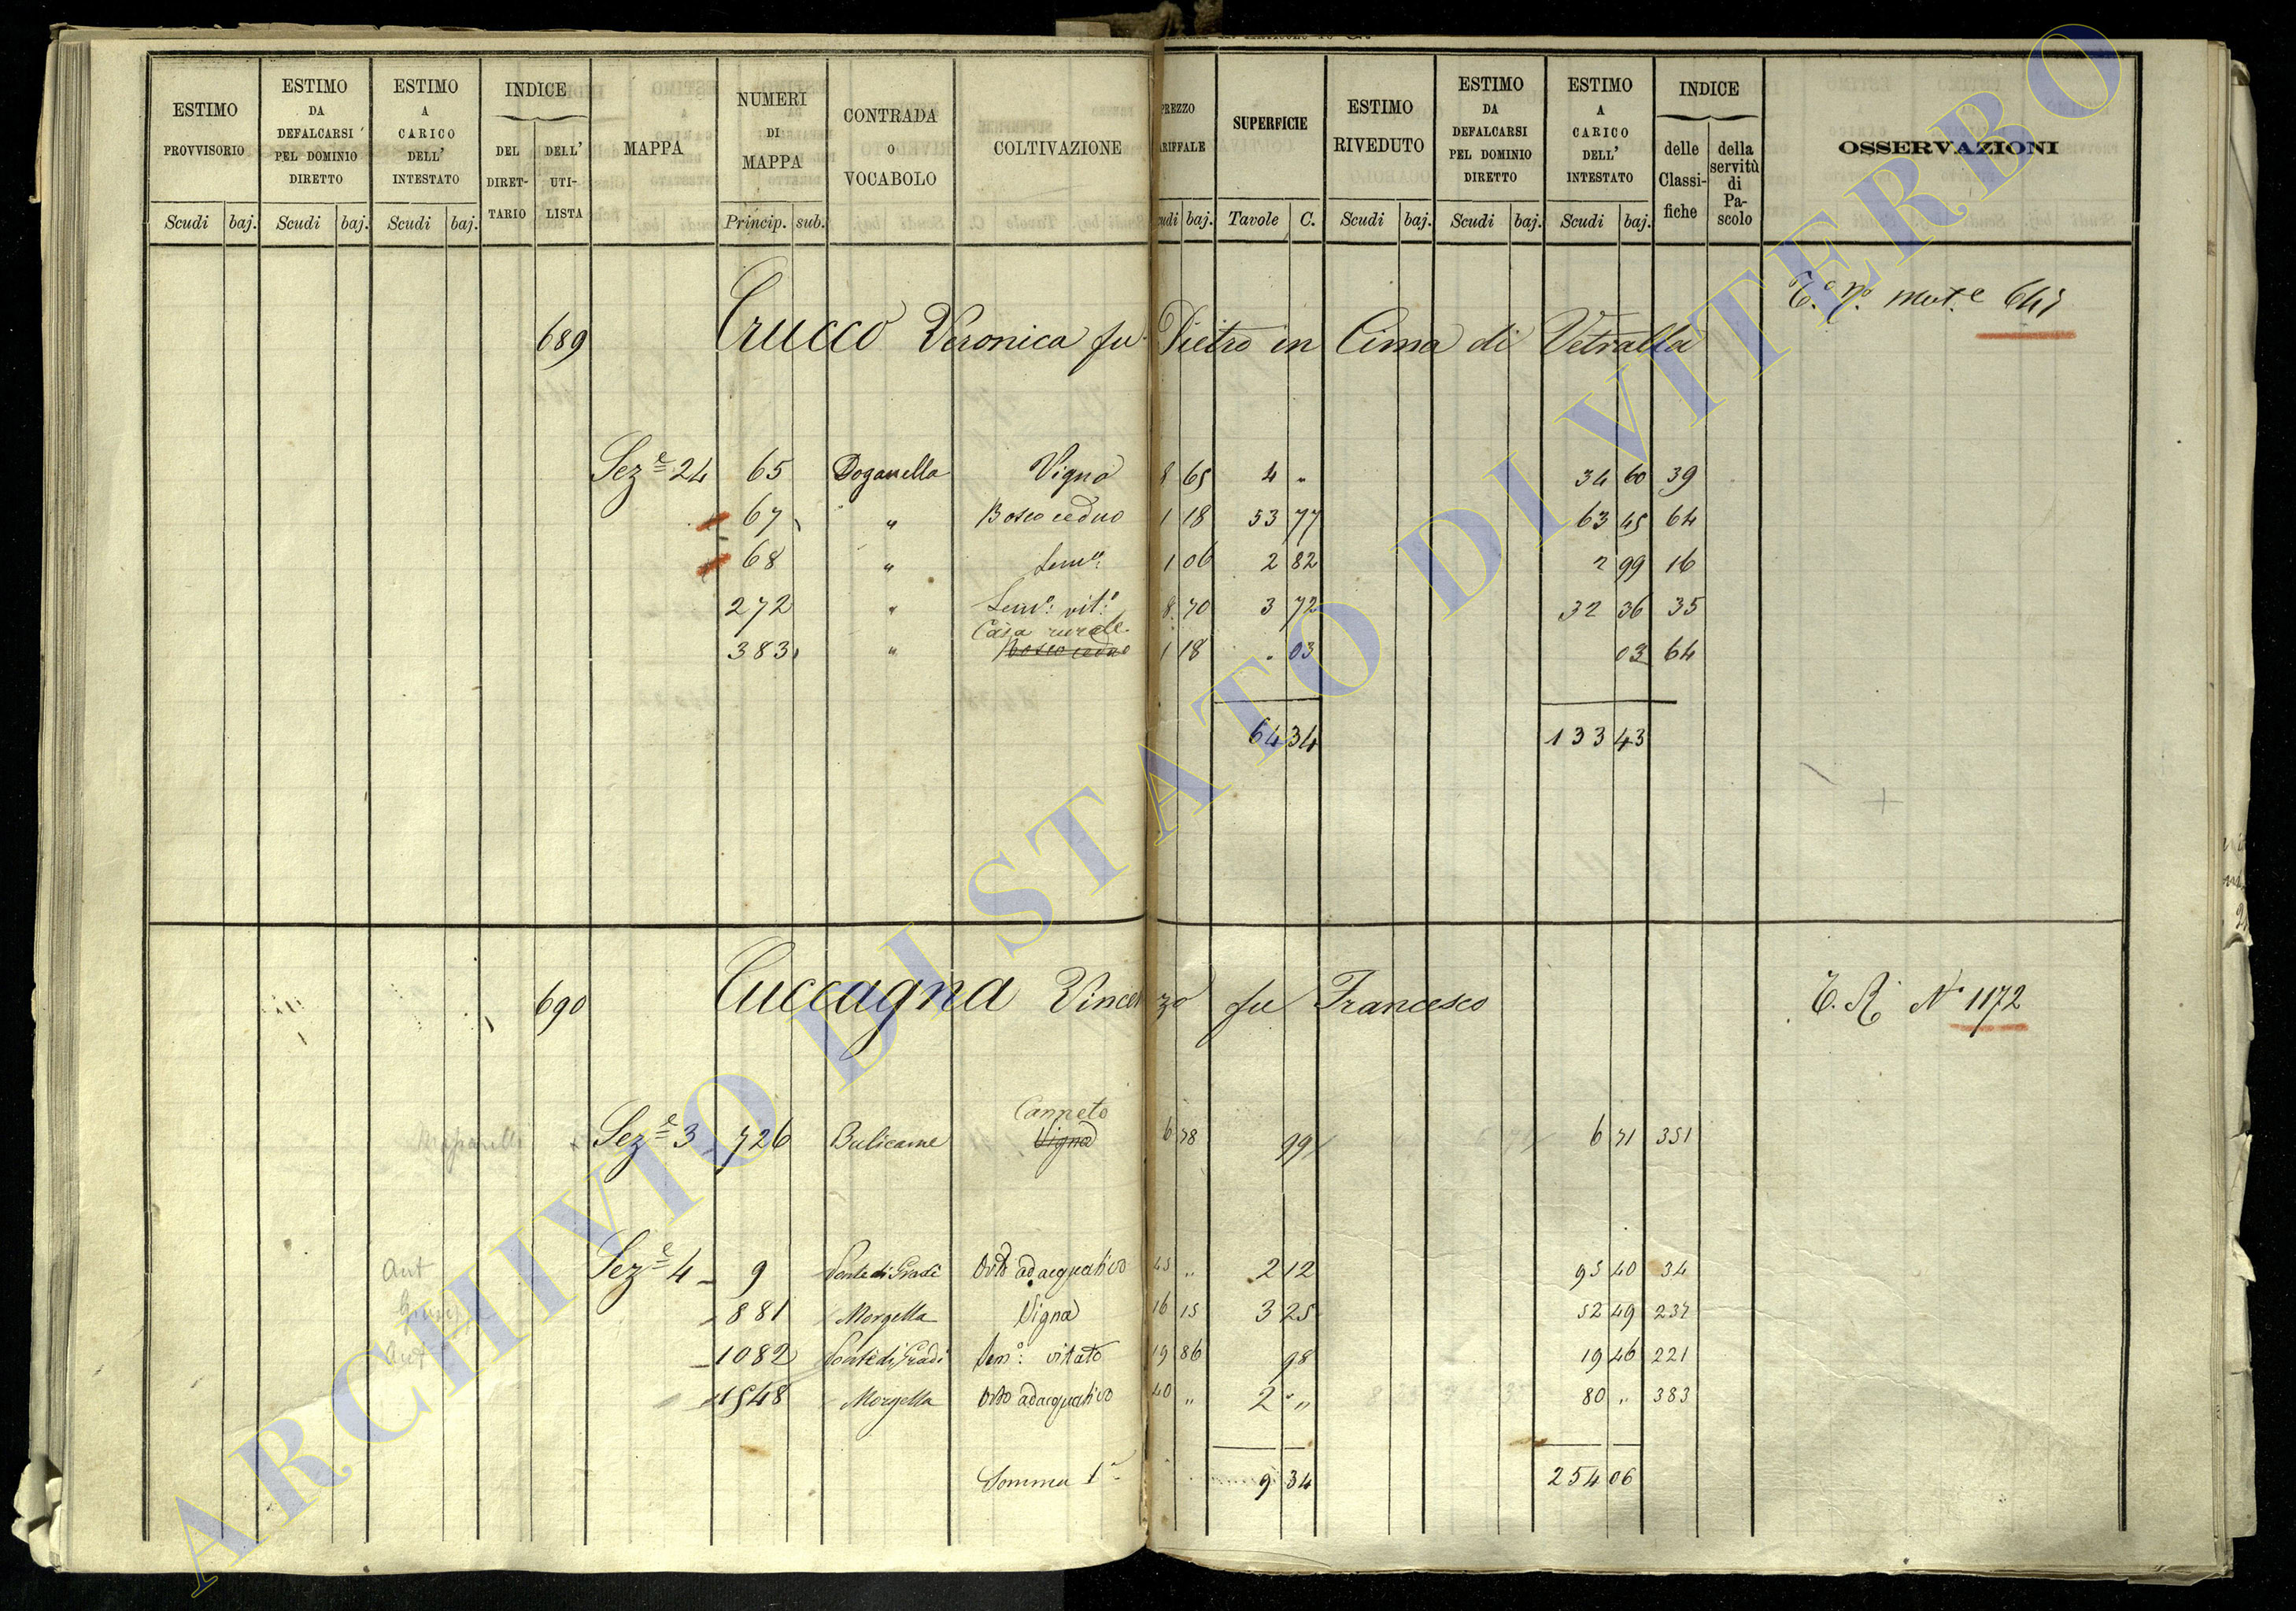 ESTIMO PROVVISORIO Scudi baj.
ESTIMO DA DEFALCARSI PEL DOMINIO DIRETTO Scudi baj.
ESTIMO A CARICO DELL' INTESTATO Scudi baj.
INDICE DEL DIRET-TARIO DELL' UTI-LISTA
MAPPA
NUMERI DI MAPPA Princip. sub.
CONTRADA O VOCABOLO
COLTIVAZIONE
baj.
SUPERFICIE Tavole C.
ESTIMO RIVEDUTO Scudi baj.
ESTIMO DA DEFALCARSI PEL DOMINIO DIRETTO Scudi baj.
ESTIMO A CARICO DELL' INTESTATO Scudi baj.
INDICE delle Classi-fiche della servitù di Pa-scolo
OSSERVAZIONI
689 Crucco Veronica fu Pietro in Cima di Vetralla
Sez.e 24 65 Doganella Vigna 8 65 4 " 34 60 39
67 " Bosco ceduo 1 18 53 77 63 45 64
68 " Sem.o 1 06 2 82 2 99 16
272 " Sem.o vit.o 8 70 3 72 32 36 35
Casa rurale
383 " Bosco ceduo 1 18 . 03 03 64
64 34 133 43
690 Cuccagna Vincenzo fu Francesco T. R. N.o 1172
Canneto
Sez.e 3 726 Bulicame Vigna 6 78 99 6 71 351
Ant
Sez.e 4 9 Ponte di Gradi Orto adacquativo 45 " 2 12 95 40 34
881 Morgella Vigna 16 15 3 25 52 49 237
Ant
1082 Ponte di Gradi Sem.o vitato 19 86 98 19 46 221
1548 Morgella Orto adacquativo 40 " 2 " 80 " 383
Somma 1.a 9 34 254 06
ARCHIVIO DI STATO DI VITERBO